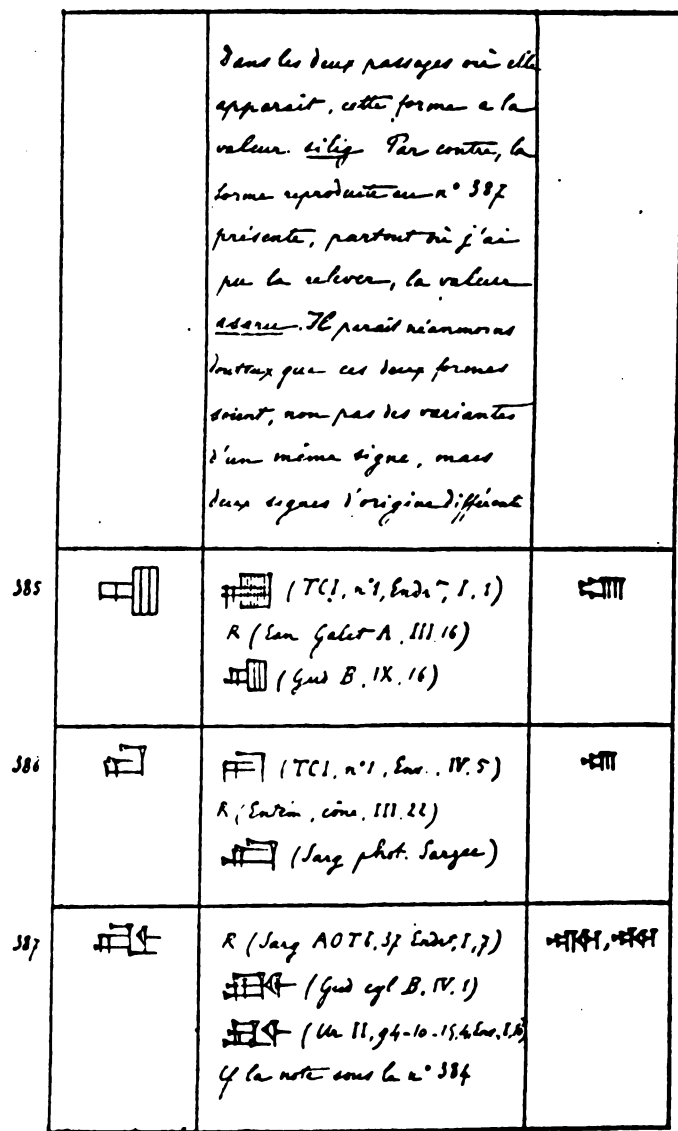 Dans les deux passages où elle
apparait, cette forme a la
valeur silig Par contre, la
forme reproduite au n° 387
présente, partout où j'ai
pu la relever, la valeur
asaru. Il parait néanmoins
douteux que ces deux formes
soient, non pas des variantes
d'un même signe, mais
deux signes d'origine différente
385
(TCI, n°1, Endrt, I, 1)
R (Ean Galet A, III 16)
(Gud B, IX, 16)
386
(TCI, n°1, Ens., IV. 5)
R (Entém, cône, III. 22)
(Sarg phot. Sarzec)
387
R (Sarg AOTb, 37 Endrt, I, 7)
(Gud cyl B, IV. 1)
(Ur II, 94-10-15, 4, Ens, I,
Cf la note sous le n° 384